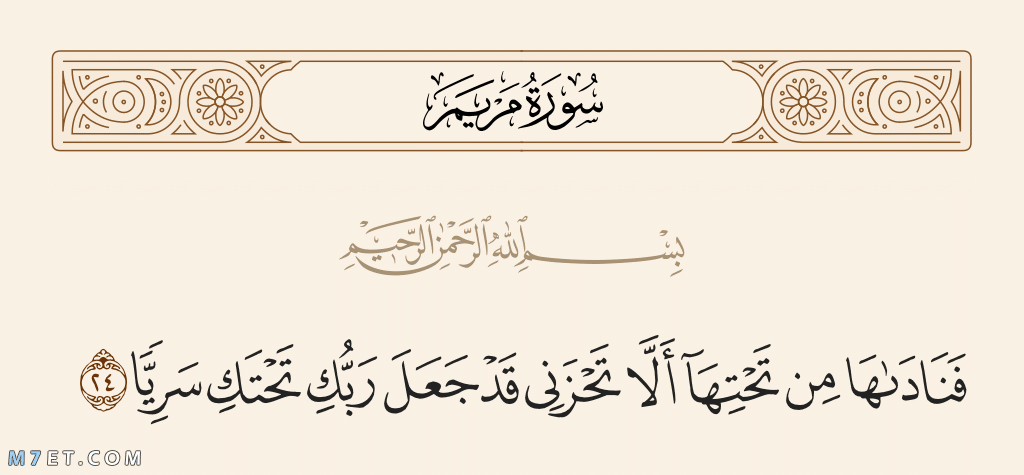 سُورَةُ مَرْيَمَ
بِسْمِ ٱللَّهِ ٱلرَّحْمَٰنِ ٱلرَّحِيمِ
فَنَادَىٰهَا مِن تَحْتِهَآ أَلَّا تَحْزَنِى قَدْ جَعَلَ رَبُّكِ تَحْتَكِ سَرِيًّا ٢٤
M7ET.COM